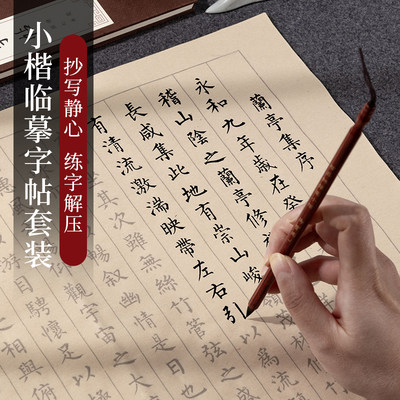 小楷临摹字帖套装
抄写静心 练字解压
蘭亭集序
永和九年歲在癸
稽山陰之蘭亭修
長咸集此地有崇山峻
有清流激湍映帶左右引以為流
坐其次雖無絲竹管弦之
暢敘幽情是日也
觀宇宙之大
目騁懷足以
相與俯